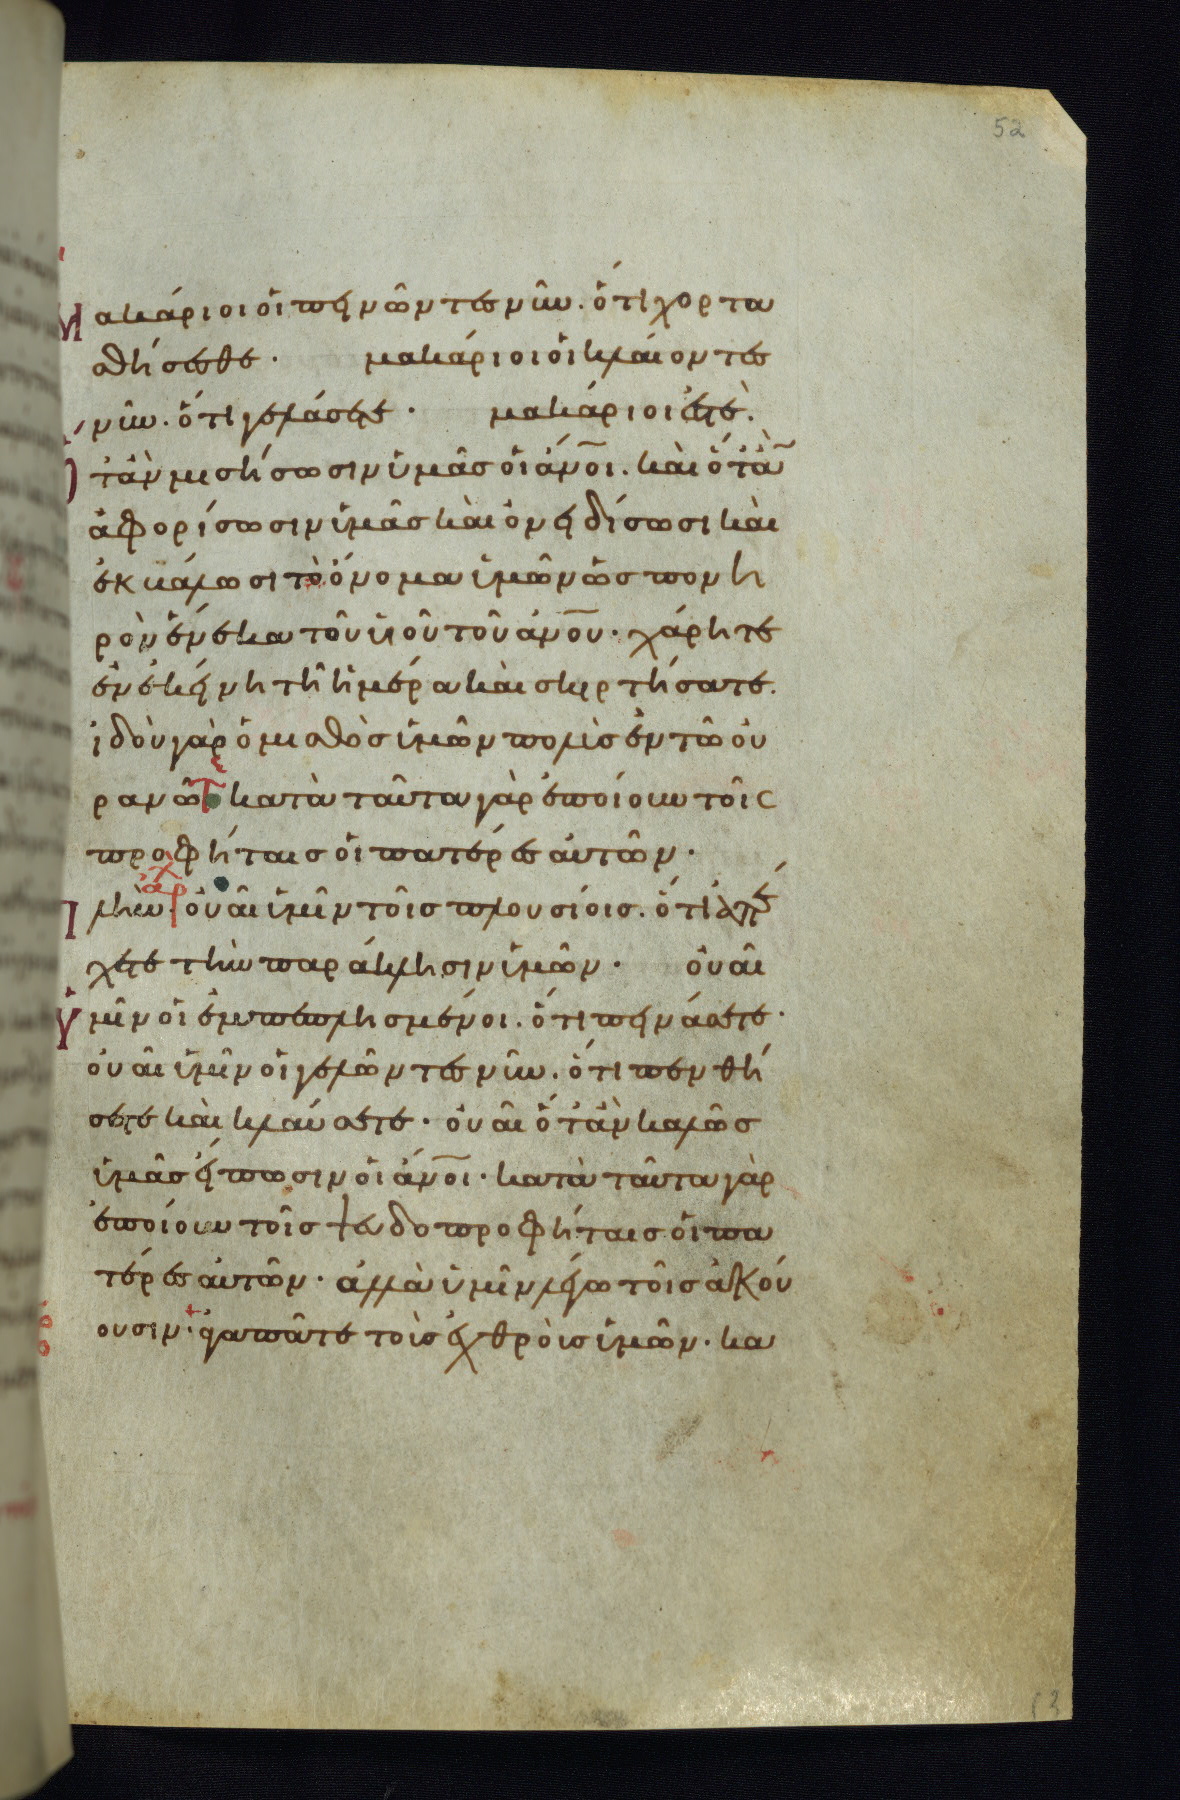 52
Μακάριοι οἱ πεινῶντες νῦν. ὅτι χορτα
σθήσεσθε· μακάριοι οἱ κλαίοντες
νῦν. ὅτι γελάσετε· μακάριοι ἐστὲ.
ὅταν μισήσωσιν ὑμᾶς οἱ ἄν̅οι. καὶ ὅτὰν
ἀφορίσωσιν ὑμᾶς καὶ ὀνειδίσωσι καὶ
ἐκβάλωσι τὸ ὄνομα ὑμῶν ὡς πονη
ρὸν ἕνεκα τοῦ υἱοῦ τοῦ ἀν̅ου· χάρητε
ἐν ἐκείνη τῆ ἡμέρα καὶ σκιρτήσατε.
ἰδοὺ γὰρ ὁ μισθὸς ὑμῶν πολὺς ἐν τῶ οὐ
ρανῶ κατὰ ταῦτα γὰρ ἐποίουν τοῖς
προφήταις οἱ πατέρες αὐτῶν·
Πλὴν· οὐαῖ ὑμῖν τοῖς πλουσίοις. ὅτι ἀπέ
χετε τὴν παράκλησιν ὑμῶν· οὐαῖ
ὑμῖν οἱ ἐμπεπλησμένοι. ὅτι πεινάσετε·
οὐαῖ ὑμῖν οἱ γελῶντες νῦν. ὅτι πενθή
σετε καὶ κλαύσετε· οὐαῖ ὅτὰν καλῶς
ὑμᾶς εἴπωσιν οἱ ἄν̅οι· κατὰ ταῦτα γὰρ
ἐποίουν τοῖς ψευδοπροφήταις οἱ πα
τέρες αὐτῶν· ἀλλὰ ὑμῖν λέγω τοῖς ἀκού
ουσιν· ἀγαπᾶτε τοὺς ἐχθροὺς ὑμῶν· κα